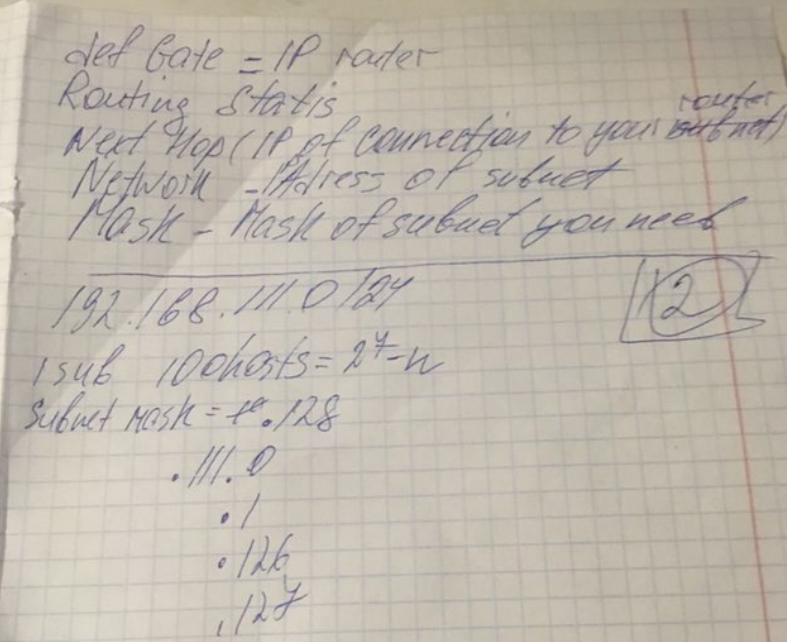 def Gate = IP router
Routing Statis
Next Hop (IP of connection to your subnet) router
Network - IP Adress of subnet
Mask - Mask of subnet you need
192.168.111.0 /24
№2
1 sub 100 hosts = 2^7 - n
Subnet Mask = .128
.111.0
.1
.126
.127